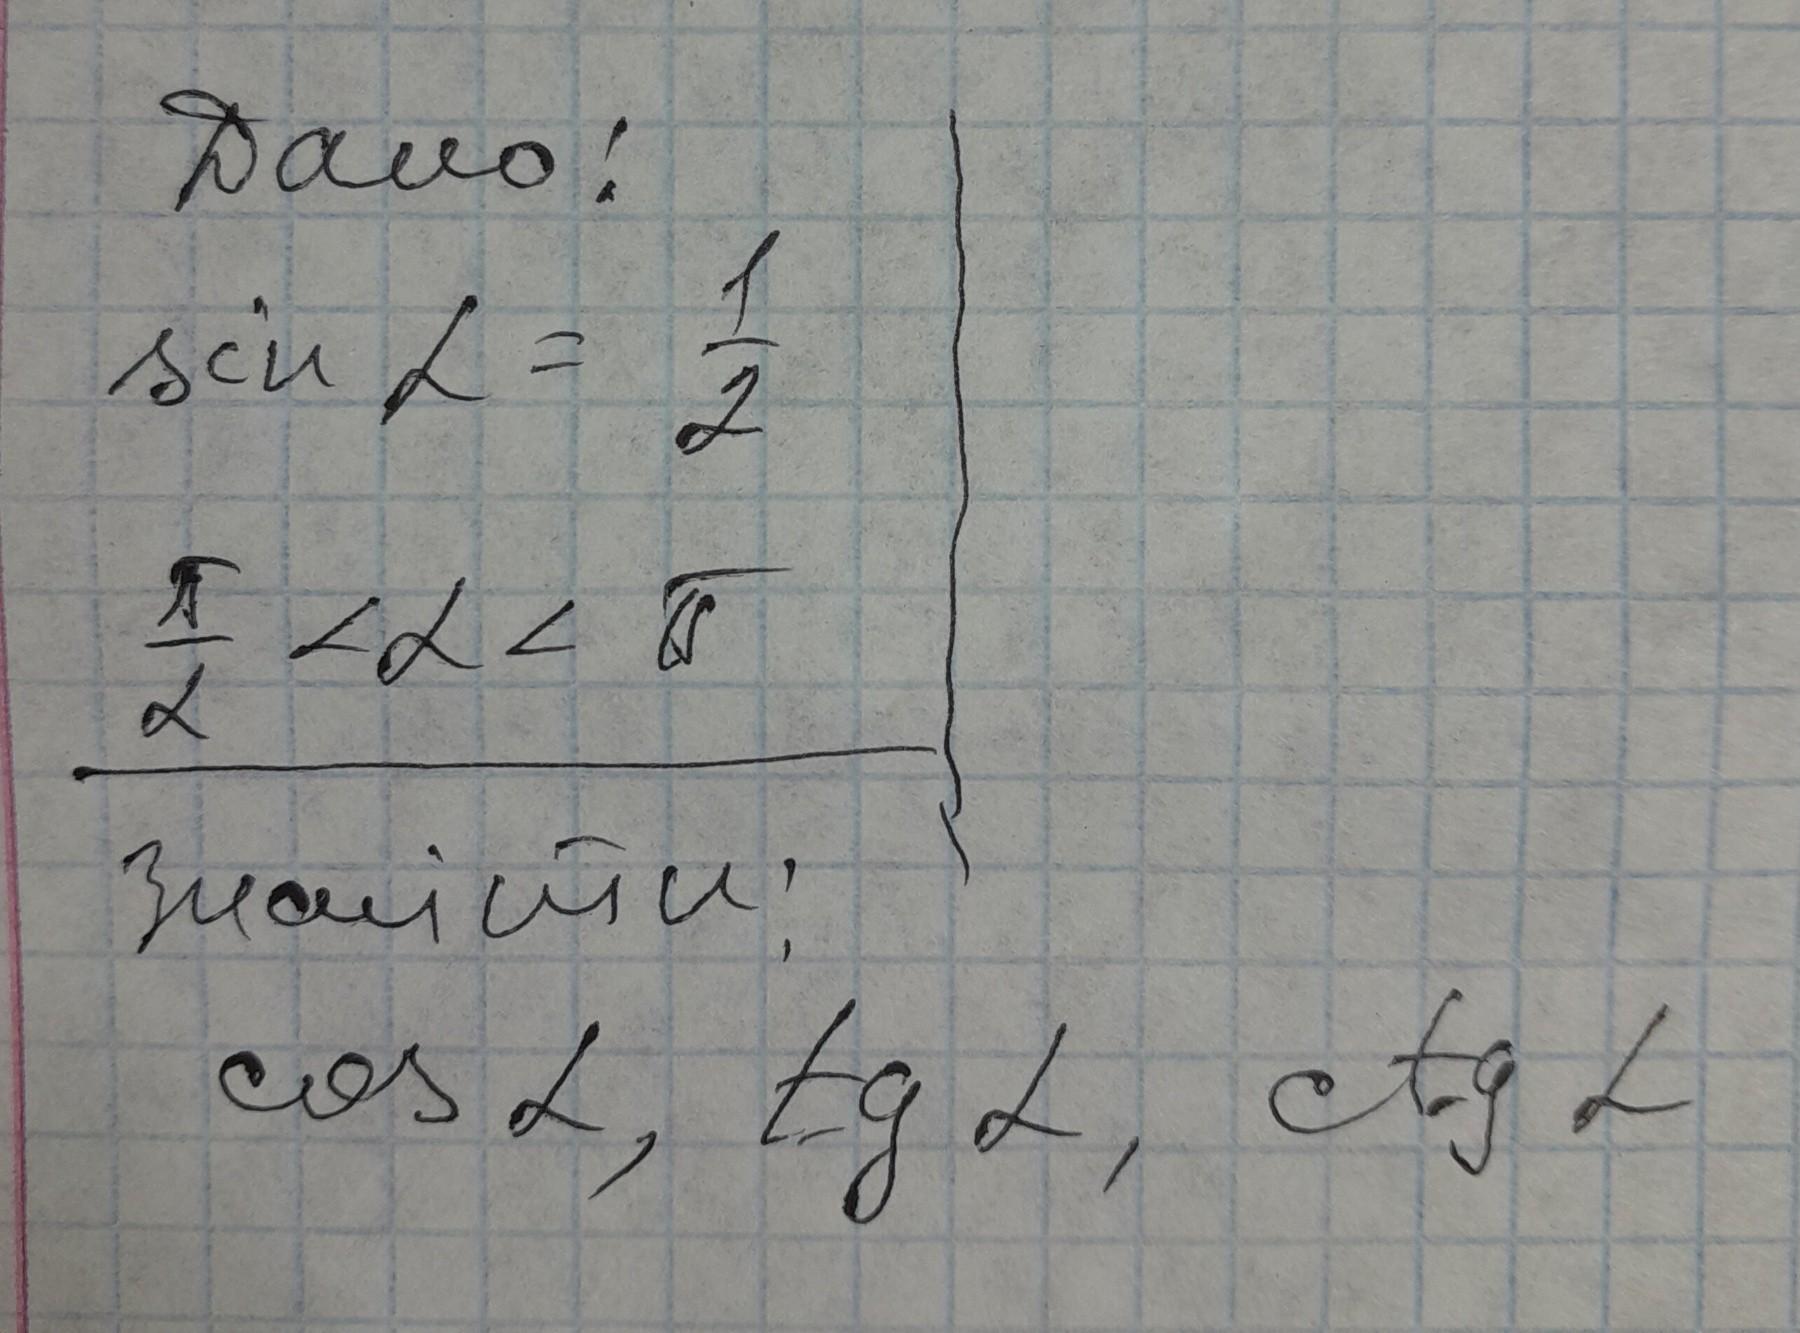 Дано:
sin α = 1/2
π/2 < α < π
Знайти:
cos α, tg α, ctg α